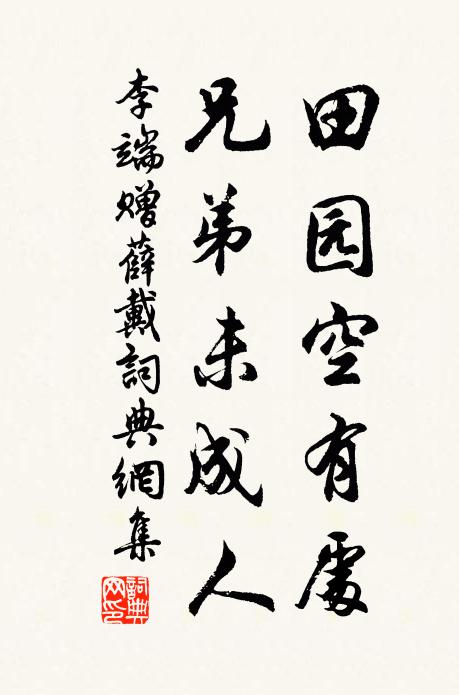 田园空有處
兄弟未成人
李端赠薛戴詞典網集
詞典网印